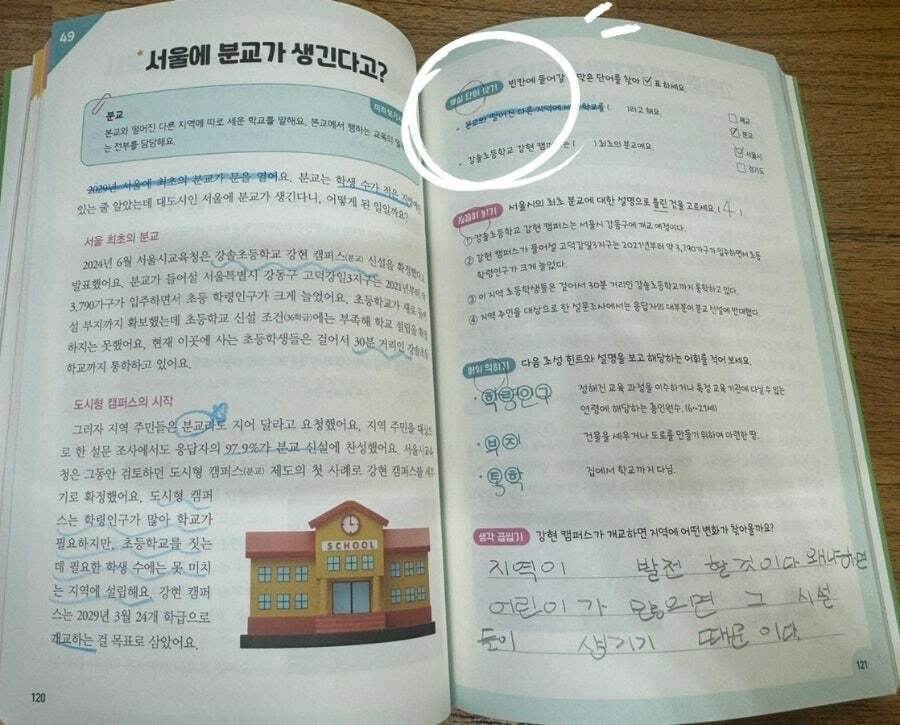 49
서울에 분교가 생긴다고?
미리보기
분교
본교와 떨어진 다른 지역에 따로 세운 학교를 말해요. 본교에서 행하는 교육의 일
는 전부를 담당해요.
2029년 서울에 최초의 분교가 문을 열어요. 분교는 학생 수가 적은
있는 줄 알았는데 대도시인 서울에 분교가 생긴다니, 어떻게 된 일일까요?
서울 최초의 분교
2024년 6월 서울시교육청은 강솔초등학교 강현 캠퍼스(분교) 신설을 확정했다고
발표했어요. 분교가 들어설 서울특별시 강동구 고덕강일3지구는 2021년부터 약
3,790가구가 입주하면서 초등 학령인구가 크게 늘었어요. 초등학교가 새로 들어
설 부지까지 확보했는데 초등학교 신설 조건(36학급)에는 부족해 학교 설립을 확정
하지는 못했어요. 현재 이곳에 사는 초등학생들은 걸어서 30분 거리인 강솔초등
학교까지 통학하고 있어요.
도시형 캠퍼스의 시작
그러자 지역 주민들은 분교라도 지어 달라고 요청했어요. 지역 주민을 대상으
로 한 설문 조사에서도 응답자의 97.9%가 분교 신설에 찬성했어요. 서울시교육
청은 그동안 검토하던 도시형 캠퍼스(분교) 제도의 첫 사례로 강현 캠퍼스를 세우
기로 확정했어요. 도시형 캠퍼
스는 학령인구가 많아 학교가
필요하지만, 초등학교를 짓는
데 필요한 학생 수에는 못 미치
는 지역에 설립해요. 강현 캠퍼
스는 2029년 3월 24개 학급으로
개교하는 걸 목표로 삼았어요.
SCHOOL
120
핵심 단어 찾기 빈칸에 들어갈 알맞은 단어를 찾아 ☑ 표 하세요.
• 본교와 떨어진 다른 지역에 세운 학교를 ( )라고 해요.
□ 폐교
☑ 분교
• 강솔초등학교 강현 캠퍼스는 ( ) 최초의 분교예요.
☑ 서울시
□ 경기도
꼼꼼히 읽기 서울시의 최초 분교에 대한 설명으로 틀린 것을 고르세요. ( 4 )
① 강솔초등학교 강현 캠퍼스는 서울시 강동구에 개교 예정이다.
② 강현 캠퍼스가 들어설 고덕강일3지구는 2021년부터 약 3,790가구가 입주하면서 초등
학령인구가 크게 늘었다.
③ 이 지역 초등학생들은 걸어서 30분 거리인 강솔초등학교까지 통학하고 있다.
④ 지역 주민을 대상으로 한 설문조사에서는 응답자의 대부분이 분교 신설에 반대했다.
어휘 익히기 다음 초성 힌트와 설명을 보고 해당하는 어휘를 적어 보세요.
• 학령인구 정해진 교육 과정을 이수하거나 특정 교육 기관에 다닐 수 있는
연령에 해당하는 총인원수. (6~21세)
• 부지 건물을 세우거나 도로를 만들기 위하여 마련한 땅.
• 통학 집에서 학교까지 다님.
생각 곱씹기 강현 캠퍼스가 개교하면 지역에 어떤 변화가 찾아올까요?
지역이 발전 할것이다 왜냐하면
어린이가 모으면 그 시설
들이 생기기 때문이다.
121